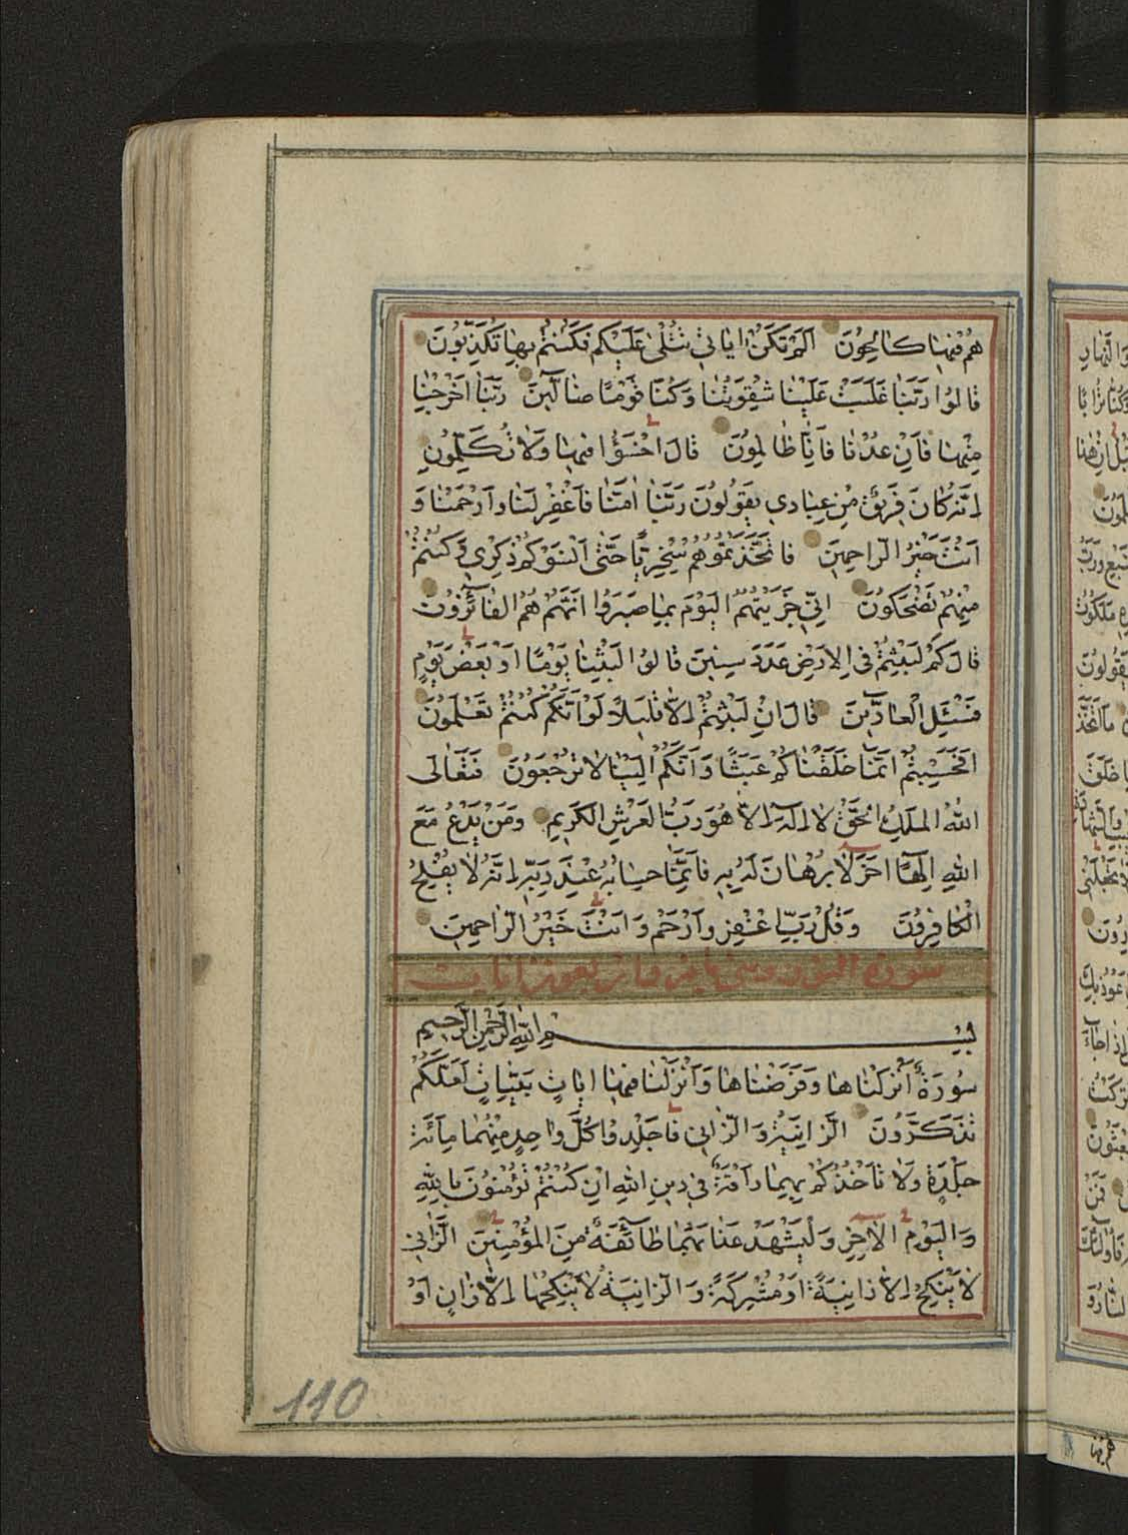 هُمْ فِيهَا كَالِحُونَ اَلَمْ تَكُنْ اٰيَاتِي تُتْلٰى عَلَيْكُمْ فَكُنْتُمْ بِهَا تُكَذِّبُونَ
قَالُوا رَبَّنَا غَلَبَتْ عَلَيْنَا شِقْوَتُنَا وَكُنَّا قَوْمًا ضَالِّينَ رَبَّنَا اَخْرِجْنَا
مِنْهَا فَاِنْ عُدْنَا فَاِنَّا ظَالِمُونَ قَالَ اخْسَؤُا فِيهَا وَلَا تُكَلِّمُونِ
اِنَّهُ كَانَ فَرِيقٌ مِنْ عِبَادِي يَقُولُونَ رَبَّنَا اٰمَنَّا فَاغْفِرْ لَنَا وَارْحَمْنَا وَ
اَنْتَ خَيْرُ الرَّاحِمِينَ فَاتَّخَذْتُمُوهُمْ سِخْرِيًّا حَتّٰى اَنْسَوْكُمْ ذِكْرِي وَكُنْتُمْ
مِنْهُمْ تَضْحَكُونَ اِنِّي جَزَيْتُهُمُ الْيَوْمَ بِمَا صَبَرُوا اَنَّهُمْ هُمُ الْفَائِزُونَ
قَالَ كَمْ لَبِثْتُمْ فِي الْاَرْضِ عَدَدَ سِنِينَ قَالُوا لَبِثْنَا يَوْمًا اَوْ بَعْضَ يَوْمٍ
فَسْئَلِ الْعَادِّينَ قَالَ اِنْ لَبِثْتُمْ اِلَّا قَلِيلًا لَوْ اَنَّكُمْ كُنْتُمْ تَعْلَمُونَ
اَفَحَسِبْتُمْ اَنَّمَا خَلَقْنَاكُمْ عَبَثًا وَاَنَّكُمْ اِلَيْنَا لَا تُرْجَعُونَ فَتَعَالَى
اللّٰهُ الْمَلِكُ الْحَقُّ لَا اِلٰهَ اِلَّا هُوَ رَبُّ الْعَرْشِ الْكَرِيمِ وَمَنْ يَدْعُ مَعَ
اللّٰهِ اِلٰهًا اٰخَرَ لَا بُرْهَانَ لَهُ بِهِ فَاِنَّمَا حِسَابُهُ عِنْدَ رَبِّهِ اِنَّهُ لَا يُفْلِحُ
الْكَافِرُونَ وَقُلْ رَبِّ اغْفِرْ وَارْحَمْ وَاَنْتَ خَيْرُ الرَّاحِمِينَ
سورة النور
بِسْمِ اللّٰهِ الرَّحْمٰنِ الرَّحِيمِ
سُورَةٌ اَنْزَلْنَاهَا وَفَرَضْنَاهَا وَاَنْزَلْنَا فِيهَا اٰيَاتٍ بَيِّنَاتٍ لَعَلَّكُمْ
تَذَكَّرُونَ اَلزَّانِيَةُ وَالزَّانِي فَاجْلِدُوا كُلَّ وَاحِدٍ مِنْهُمَا مِائَةَ
جَلْدَةٍ وَلَا تَأْخُذْكُمْ بِهِمَا رَأْفَةٌ فِي دِينِ اللّٰهِ اِنْ كُنْتُمْ تُؤْمِنُونَ بِاللّٰهِ
وَالْيَوْمِ الْاٰخِرِ وَلْيَشْهَدْ عَذَابَهُمَا طَائِفَةٌ مِنَ الْمُؤْمِنِينَ اَلزَّانِي
لَا يَنْكِحُ اِلَّا زَانِيَةً اَوْ مُشْرِكَةً وَالزَّانِيَةُ لَا يَنْكِحُهَا اِلَّا زَانٍ اَوْ
110